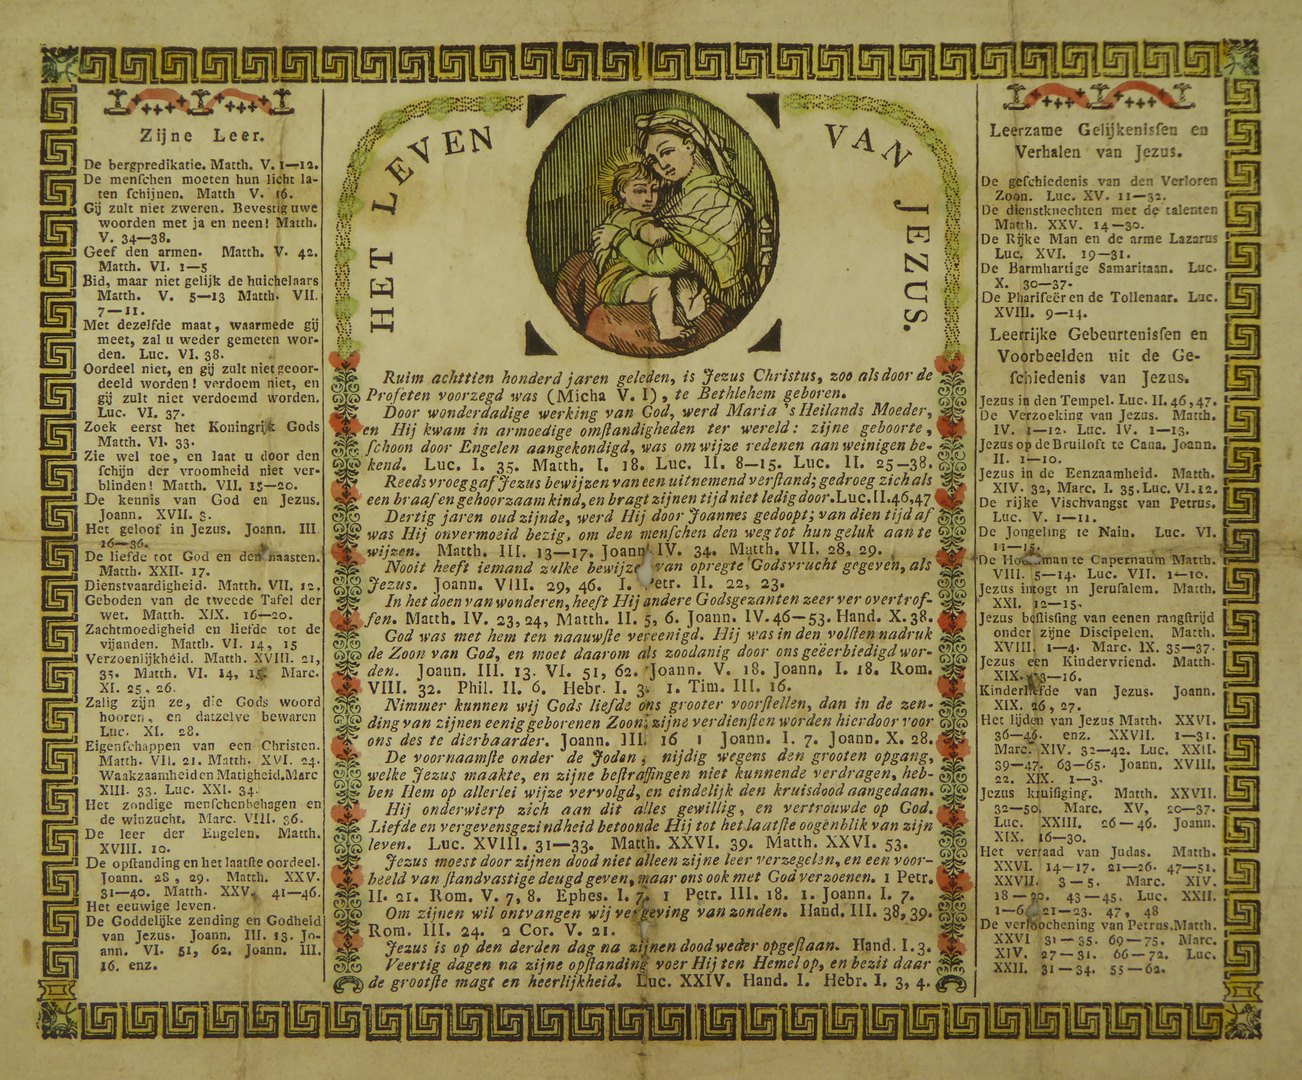 HET LEVEN VAN JEZUS.
Zijne Leer.
De bergpredikatie. Matth. V. 1—12.
De menſchen moeten hun licht la-
ten ſchijnen. Matth V. 16.
Gij zult niet zweren. Bevestig uwe
woorden met ja en neen! Matth.
V. 34—38.
Geef den armen. Matth. V. 42.
Matth. VI. 1—5
Bid, maar niet gelijk de huichelaars
Matth. V. 5—13 Matth. VII.
7—11.
Met dezelfde maat, waarmede gij
meet, zal u weder gemeten wor-
den. Luc. VI. 38.
Oordeel niet, en gij zult niet geoor-
deeld worden! verdoem niet, en
gij zult niet verdoemd worden.
Luc. VI. 37.
Zoek eerst het Koningrijk Gods
Matth. VI. 33.
Zie wel toe, en laat u door den
ſchijn der vroomheid niet ver-
blinden! Matth. VII. 15—20.
De kennis van God en Jezus.
Joann. XVII. 3.
Het geloof in Jezus. Joann. III
16—36.
De liefde tot God en den naasten.
Matth. XXII. 17.
Dienstvaardigheid. Matth. VII. 12.
Geboden van de tweede Tafel der
wet. Matth. XIX. 16—20.
Zachtmoedigheid en liefde tot de
vijanden. Matth. VI. 14, 15
Verzoenlijkheid. Matth. XVIII. 21,
35. Matth. VI. 14, 15. Marc.
XI. 25, 26.
Zalig zijn ze, die Gods woord
hooren, en datzelve bewaren
Luc. XI. 28.
Eigenſchappen van een Christen.
Matth. VII. 21. Matth. XVI. 24.
Waakzaamheid en Matigheid. Marc
XIII. 33. Luc. XXI. 34.
Het zondige menſchenbehagen en
de winzucht. Marc. VIII. 36.
De leer der Engelen. Matth.
XVIII. 10.
De opſtanding en het laatſte oordeel.
Joann. 28, 29. Matth. XXV.
31—40. Matth. XXV. 41—46.
Het eeuwige leven.
De Goddelijke zending en Godheid
van Jezus. Joann. III. 13. Jo-
ann. VI. 51, 62. Joann. III.
16. enz.
Ruim achttien honderd jaren geleden, is Jezus Christus, zoo als door de
Profeten voorzegd was (Micha V. I), te Bethlehem geboren.
Door wonderdadige werking van God, werd Maria 's Heilands Moeder,
en Hij kwam in armoedige omſtandigheden ter wereld: zijne geboorte,
ſchoon door Engelen aangekondigd, was om wijze redenen aan weinigen be-
kend. Luc. I. 35. Matth. I. 18. Luc. II. 8—15. Luc. II. 25—38.
Reeds vroeg gaf Jezus bewijzen van een uitnemend verſtand; gedroeg zich als
een braaf en gehoorzaam kind, en bragt zijnen tijd niet ledig door. Luc. II. 46, 47
Dertig jaren oud zijnde, werd Hij door Joannes gedoopt; van dien tijd af
was Hij onvermoeid bezig, om den menſchen den weg tot hun geluk aan te
wijzen. Matth. III. 13—17. Joann IV. 34. Matth. VII. 28, 29.
Nooit heeft iemand zulke bewijze van opregte Godsvrucht gegeven, als
Jezus. Joann. VIII. 29, 46. I. Petr. II. 22, 23.
In het doen van wonderen, heeft Hij andere Godsgezanten zeer ver overtrof-
fen. Matth. IV. 23, 24, Matth. II. 5, 6. Joann. IV. 46—53. Hand. X. 38.
God was met hem ten naauwſte vereenigd. Hij was in den volſten nadruk
de Zoon van God, en moet daarom als zoodanig door ons geëerbiedigd wor-
den. Joann. III. 13. VI. 51, 62. Joann. V. 18. Joann. I. 18. Rom.
VIII. 32. Phil. II. 6. Hebr. I. 3. 1. Tim. III. 16.
Nimmer kunnen wij Gods liefde ons grooter voorſtellen, dan in de zen-
ding van zijnen eenig geborenen Zoon; zijne verdienſten worden hierdoor voor
ons des te dierbaarder. Joann. III. 16 1 Joann. I. 7. Joann. X. 28.
De voornaamſte onder de Joden, nijdig wegens den grooten opgang,
welke Jezus maakte, en zijne beſtraffingen niet kunnende verdragen, heb-
ben Hem op allerlei wijze vervolgd, en eindelijk den kruisdood aangedaan.
Hij onderwierp zich aan dit alles gewillig, en vertrouwde op God.
Liefde en vergevensgezindheid betoonde Hij tot het laatſte oogenblik van zijn
leven. Luc. XVIII. 31—33. Matth. XXVI. 39. Matth. XXVI. 53.
Jezus moest door zijnen dood niet alleen zijne leer verzegelen, en een voor-
beeld van ſtandvastige deugd geven, maar ons ook met God verzoenen. 1 Petr.
II. 21. Rom. V. 7, 8. Ephes. I. 7. 1 Petr. III. 18. 1. Joann. I. 7.
Om zijnen wil ontvangen wij vergeving van zonden. Hand. III. 38, 39.
Rom. III. 24. 2 Cor. V. 21.
Jezus is op den derden dag na zijnen dood weder opgeſtaan. Hand. I. 3.
Veertig dagen na zijne opſtanding voer Hij ten Hemel op, en bezit daar
de grootſte magt en heerlijkheid. Luc. XXIV. Hand. I. Hebr. I. 3, 4.
Leerzame Gelijkenisſen en
Verhalen van Jezus.
De geſchiedenis van den Verloren
Zoon. Luc. XV. 11—32.
De dienstknechten met de talenten
Matth. XXV. 14—30.
De Rijke Man en de arme Lazarus
Luc. XVI. 19—31.
De Barmhartige Samaritaan. Luc.
X. 30—37.
De Phariſeër en de Tollenaar. Luc.
XVIII. 9—14.
Leerrijke Gebeurtenisſen en
Voorbeelden uit de Ge-
ſchiedenis van Jezus.
Jezus in den Tempel. Luc. II. 46, 47.
De Verzoeking van Jezus. Matth.
IV. 1—12. Luc. IV. 1—13.
Jezus op de Bruiloft te Cana. Joann.
II. 1—10.
Jezus in de Eenzaamheid. Matth.
XIV. 32, Marc. I. 35. Luc. VI. 12.
De rijke Vischvangst van Petrus.
Luc. V. 1—11.
De Jongeling te Nain. Luc. VI.
11—15.
De man te Capernaum Matth.
VIII. 5—14. Luc. VII. 1—10.
Jezus intogt in Jeruſalem. Matth.
XXI. 12—15.
Jezus beſlisſing van eenen rangſtrijd
onder zijne Discipelen. Matth.
XVIII. 1—4. Marc. IX. 35—37.
Jezus een Kindervriend. Matth.
XIX. 13—16.
Kinderliefde van Jezus. Joann.
XIX. 26, 27.
Het lijden van Jezus Matth. XXVI.
36—46. enz. XXVII. 1—31.
Marc. XIV. 32—42. Luc. XXII.
39—47. 63—65. Joann. XVIII.
22. XIX. 1—3.
Jezus kruiſiging. Matth. XXVII.
32—50. Marc. XV, 20—37.
Luc. XXIII. 26—46. Joann.
XIX. 16—30.
Het verraad van Judas. Matth.
XXVI. 14—17. 21—26. 47—51.
XXVII. 3—5. Marc. XIV.
18—20. 43—45. Luc. XXII.
1—6. 21—23. 47, 48
De verloochening van Petrus. Matth.
XXVI 31—35. 69—75. Marc.
XIV. 27—31. 66—72. Luc.
XXII. 31—34. 55—62.